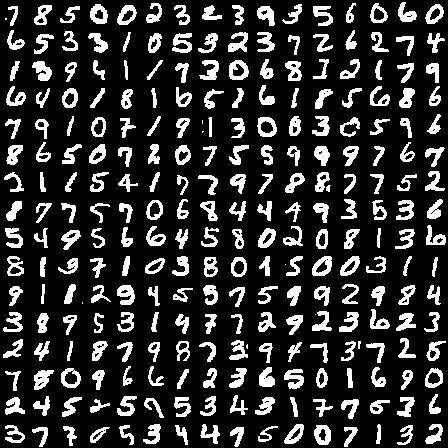 7 8 5 0 0 2 3 2 3 9 3 5 6 0 6 0
6 5 3 3 1 0 5 3 2 3 7 2 6 2 7 4
1 3 9 4 1 1 9 3 0 6 8 3 2 1 7 9
6 4 0 1 8 1 6 5 1 6 1 8 5 6 8 6
7 9 1 0 7 1 9 1 3 0 8 3 0 5 9 6
8 6 5 0 7 2 0 7 5 5 9 9 9 7 6 7
2 1 1 5 4 1 7 7 9 7 8 8 7 7 5 2
8 7 7 5 7 0 6 8 4 4 4 9 3 5 3 6
5 4 9 5 6 6 4 5 8 0 2 0 8 1 3 6
8 1 9 7 1 0 3 8 0 1 5 0 0 3 1 1
9 1 1 2 9 4 5 5 7 5 9 9 2 9 8 4
3 8 9 5 3 1 9 7 7 2 9 2 3 6 2 3
2 4 1 8 7 9 8 7 3 9 4 7 3 7 2 6
7 8 0 9 6 6 1 2 3 6 5 0 1 6 9 0
2 4 5 2 5 9 5 3 4 3 1 7 7 5 3 6
3 7 7 0 5 3 4 4 9 5 0 0 7 1 3 2